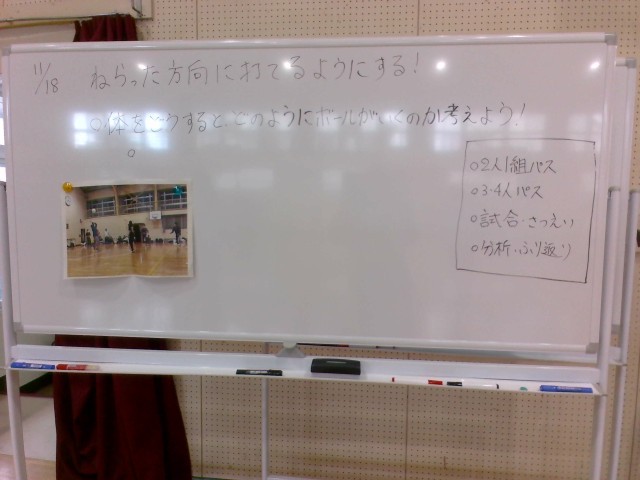 11/18 ねらった方向に打てるようにする!
○体をどうすると、どのようにボールがいくのか考えよう!
○
○2人1組パス
○3・4人パス
○試合・さつえい
○分析・ふり返り